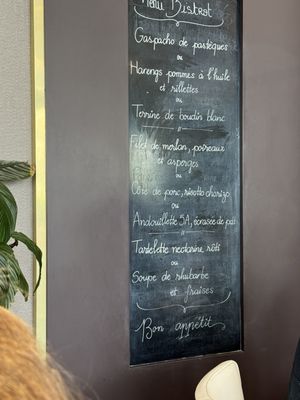 Menu Bistrot
Gaspacho de pastèques
ou
Harengs pommes à l'huile
et rillettes
ou
Terrine de boudin blanc
Filet de merlan, poireaux
et asperges
ou
Côte de porc, risotto chorizo
ou
Andouillette 5A, écrasée de
Tartelette nectarine rôti
ou
Soupe de rhubarbe
et fraises
Bon appétit